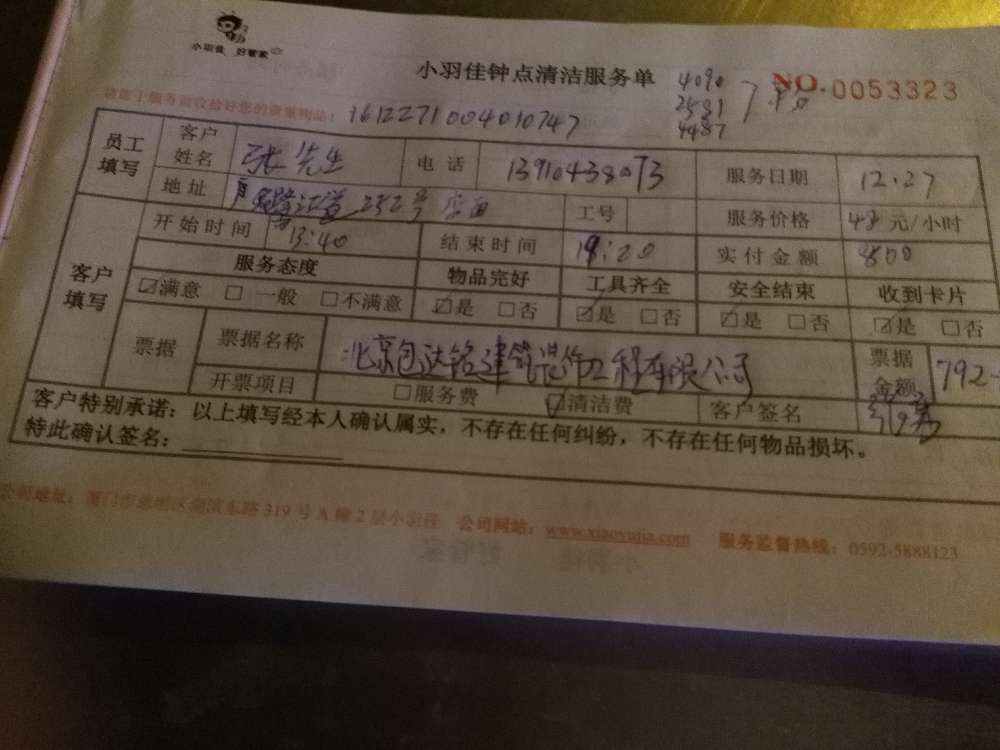 小羽佳 好管家
小羽佳钟点清洁服务单
NO.0053323
4090
2531
4487
请临上服务前收拾好您的贵重物品:
161227100401 0747
员工填写 客户姓名 张先生 电话 13910438073 服务日期 12.27
地址 252号 店面 工号 服务价格 48元/小时
客户填写 开始时间 13:40 结束时间 18:20 实付金额
服务态度 物品完好 工具齐全 安全结束 收到卡片
☑满意 □一般 □不满意 ☑是 □否 ☑是 □否 ☑是 □否 ☑是 □否
票据 票据名称 北京包达铭建筑装饰工程有限公司 票据金额 792
开票项目 □服务费 ☑清洁费 客户签名
客户特别承诺:以上填写经本人确认属实,不存在任何纠纷,不存在任何物品损坏。
特此确认签名:
公司地址:厦门市思明区湖滨东路319号A幢2层小羽佳 公司网站:www.xiaoyujia.com 服务监督热线:0592-5888123